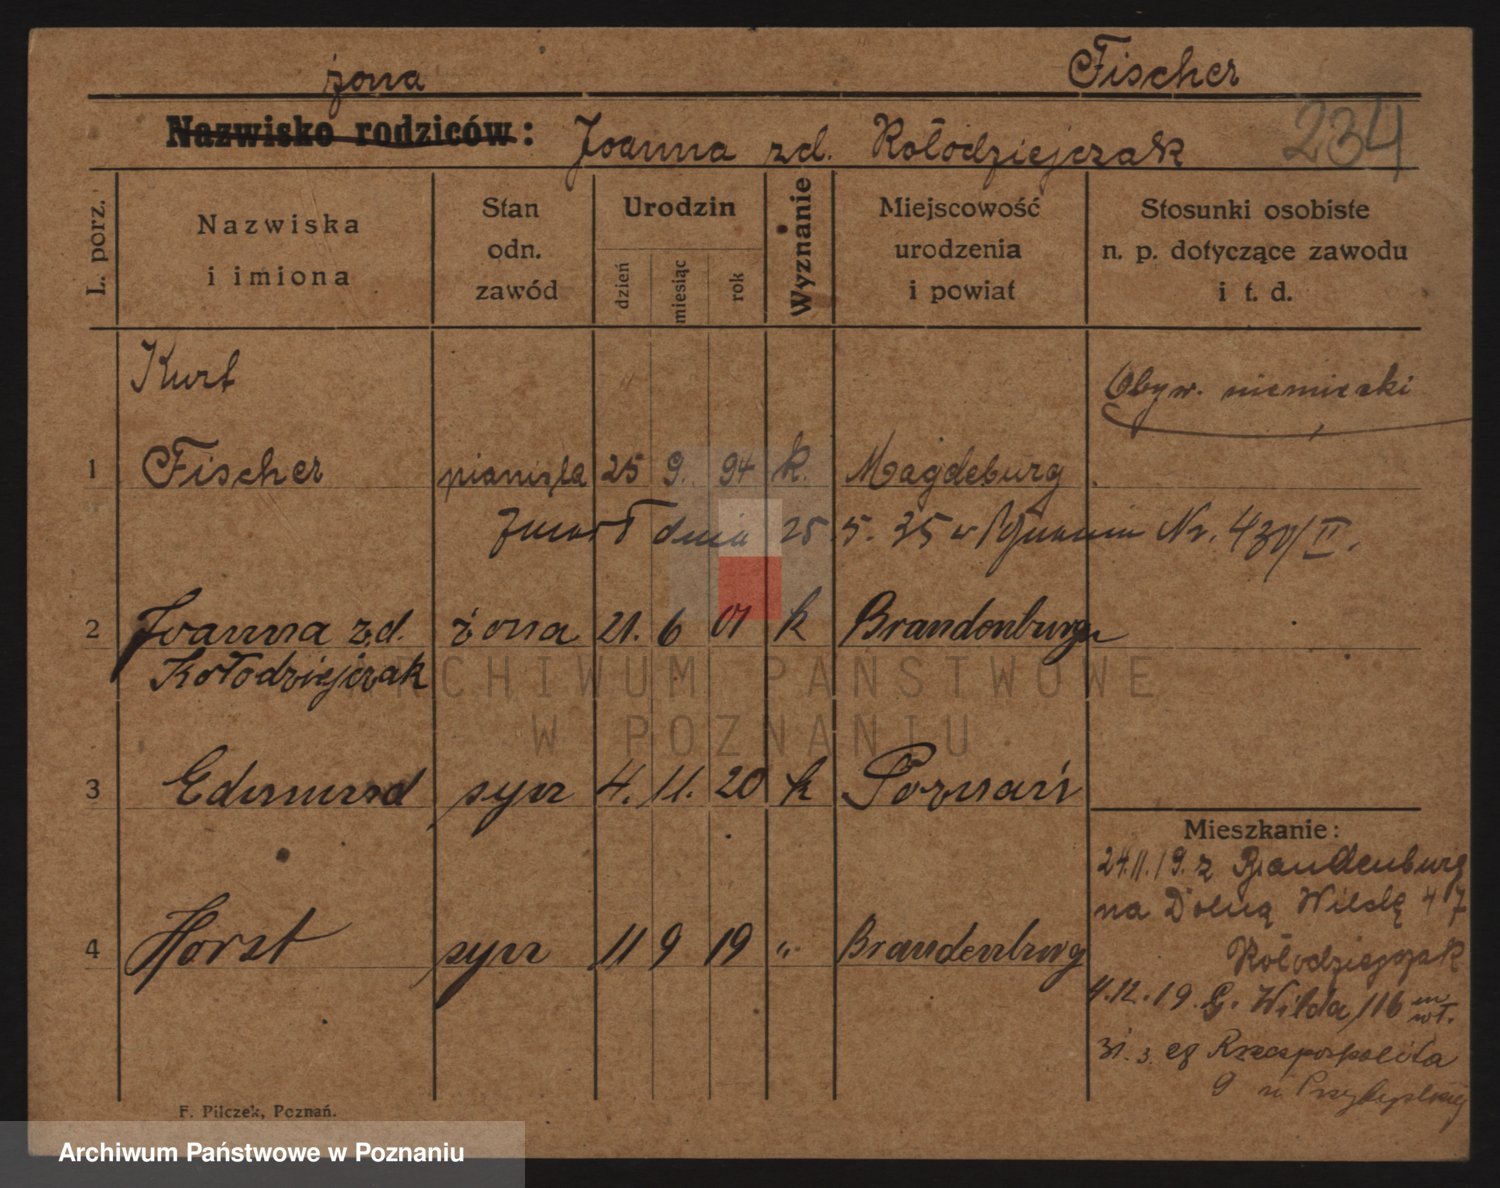 żona Fischer
Nazwisko rodziców: Joanna zd. Kołodziejczak 234
L. porz. Nazwiska i imiona Stan odn. zawód Urodzin dzień miesiąc rok Wyznanie Miejscowość urodzenia i powiat Stosunki osobiste n. p. dotyczące zawodu i t. d.
Kurt Obyw. niemiecki
1 Fischer pianista 25 9. 94 k. Magdeburg
Zmarł dnia 25 5. 35 w Poznaniu Nr. 430/II.
2 Joanna zd. żona 21. 6 01 k Brandenburgu
Kołodziejczak
3 Edmund syn 4. 11. 20 k Poznań
Mieszkanie:
24.11.19. z Brandenburg
na Dolną Wildę 47
4 Horst syn 11 9 19 „ Brandenburg
Kołodziejczak
4.12.19. G. Wilda 116 m. wł.
31. 3. Rzeczpospolita
9 u Przybylskiej
F. Pilczek, Poznań.
ARCHIWUM PAŃSTWOWE
W POZNANIU
Archiwum Państwowe w Poznaniu